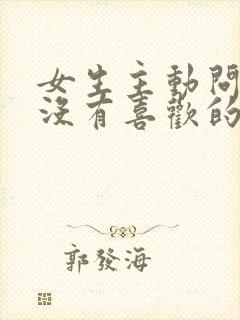 女生主動問
沒有喜歡的
郭發海